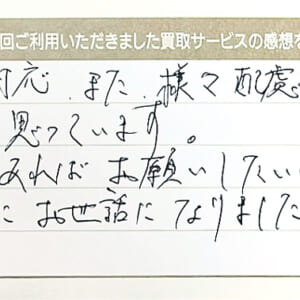 回ご利用いただきました買取サービスの感想を
対応、また、様々配慮
思っています。
あればお願いしたい
にお世話になりました